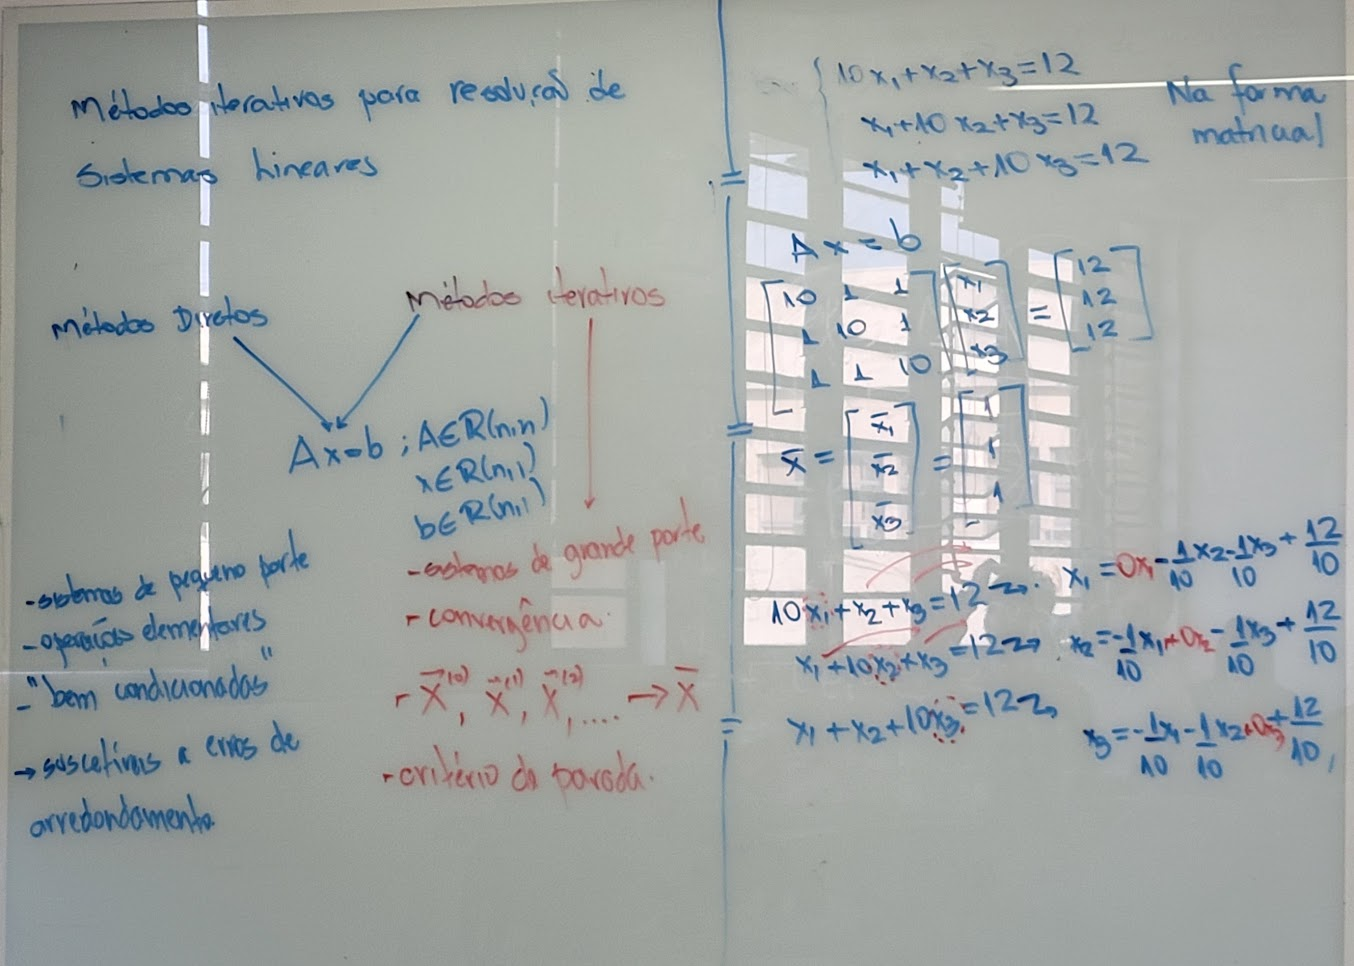 Métodos iterativos para resolução de
Sistemas Lineares
Métodos Diretos
Métodos iterativos
Ax=b ; A∈R(n,n)
x∈R(n,1)
b∈R(n,1)
-sistemas de pequeno porte
-operações elementares
-"bem condicionados"
→ suscetíveis a erros de
arredondamento
-sistemas de grande porte
-convergência.
- x̄⁽⁰⁾, x̄⁽¹⁾, x̄⁽²⁾, .... → x̄
-critério de parada.
{ 10x₁+x₂+x₃=12
x₁+10x₂+x₃=12
x₁+x₂+10x₃=12
Na forma
matricial
Ax=b
[10 1 1] [x₁] = [12]
[1 10 1] [x₂] = [12]
[1 1 10] [x₃] = [12]
x̄ = [x̄₁] = [1]
[x̄₂] = [1]
[x̄₃] = [1]
10x₁+x₂+x₃=12 → x₁=0x₁-1/10x₂-1/10x₃+12/10
x₁+10x₂+x₃=12 → x₂=-1/10x₁+0x₂-1/10x₃+12/10
x₁+x₂+10x₃=12 → x₃=-1/10x₁-1/10x₂+0x₃+12/10,